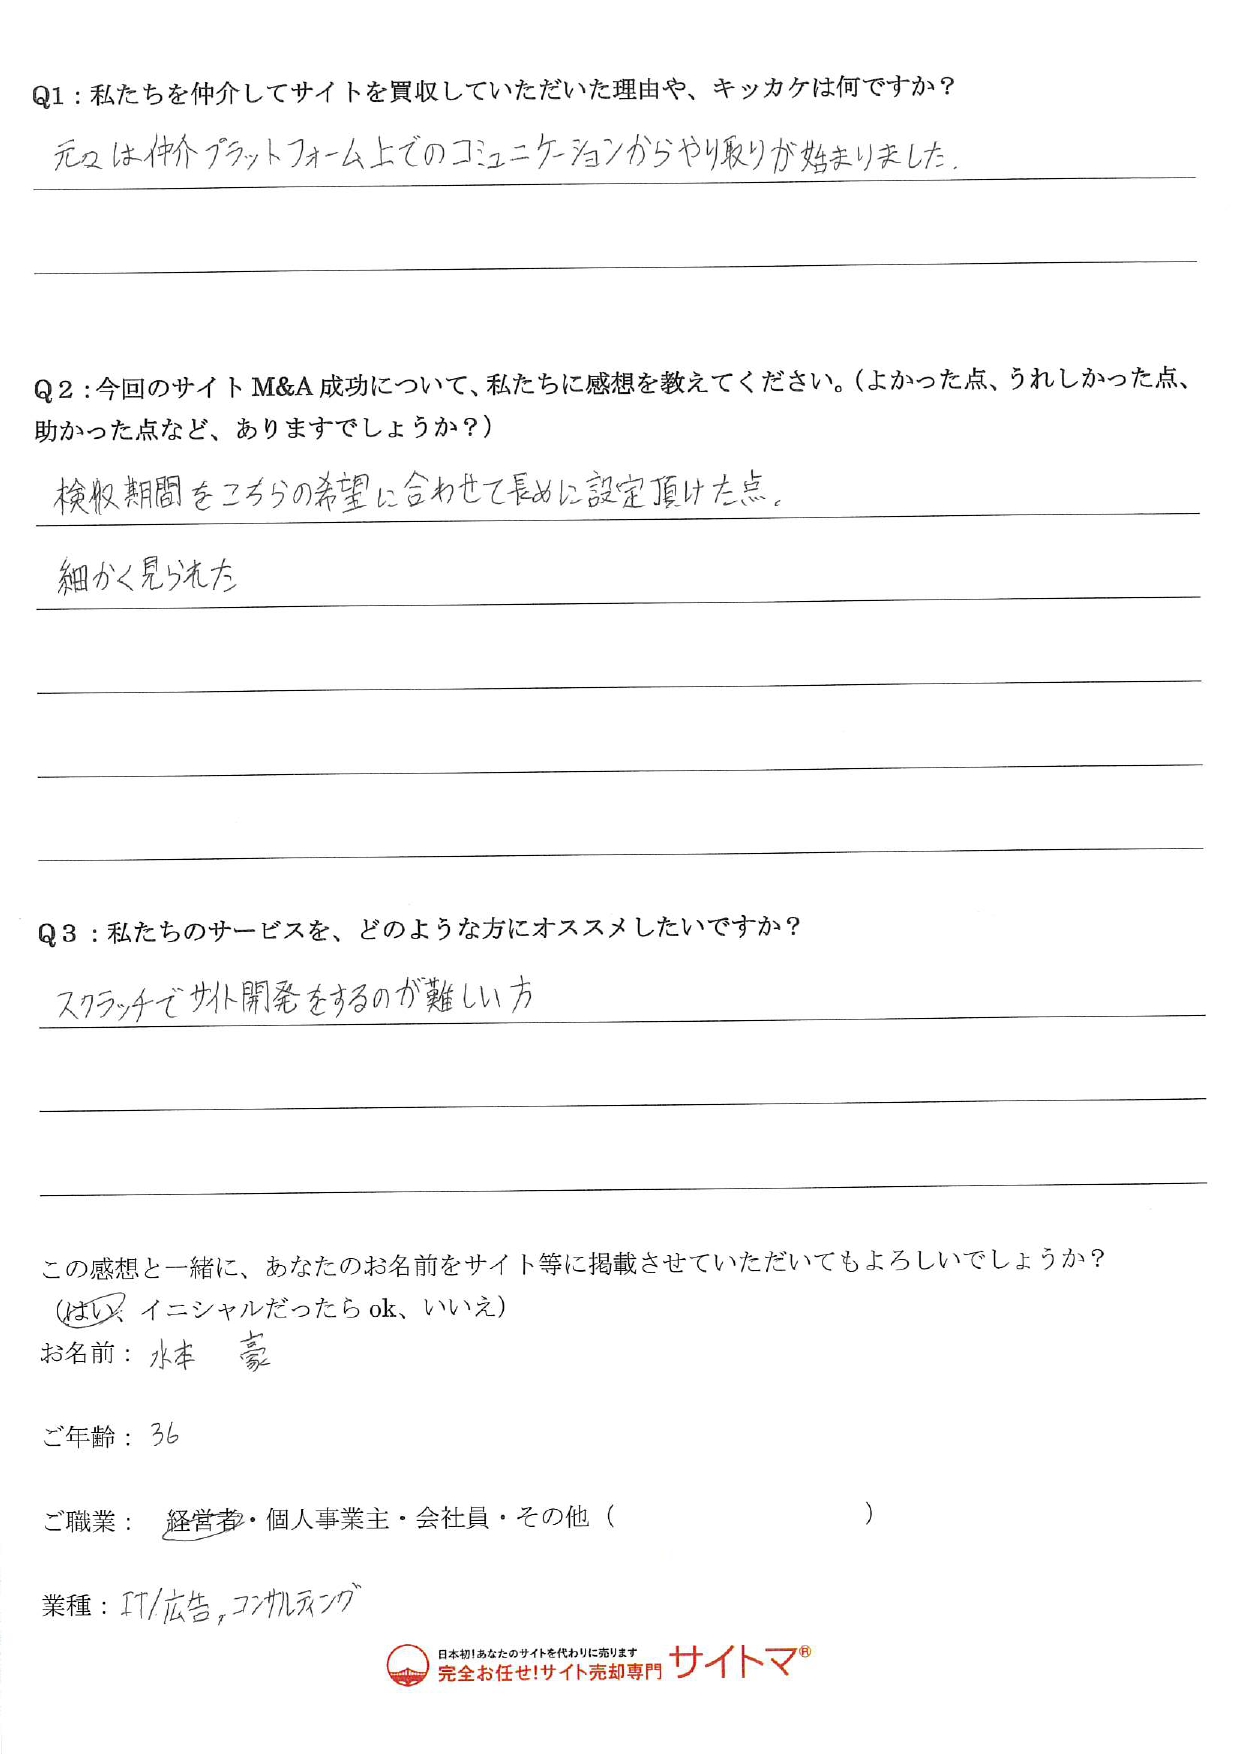 Q1：私たちを仲介してサイトを買収していただいた理由や、キッカケは何ですか？
元々は仲介プラットフォーム上でのコミュニケーションからやり取りが始まりました.
Q２：今回のサイトM&A成功について、私たちに感想を教えてください。（よかった点、うれしかった点、
助かった点など、ありますでしょうか？）
検収期間をこちらの希望に合わせて長めに設定頂けた点。
細かく見られた
Q３：私たちのサービスを、どのような方にオススメしたいですか？
スクラッチでサイト開発をするのが難しい方
この感想と一緒に、あなたのお名前をサイト等に掲載させていただいてもよろしいでしょうか？
（はい、イニシャルだったらok、いいえ）
お名前： 水本 豪
ご年齢： 36
ご職業： 経営者・個人事業主・会社員・その他（ ）
業種：IT/広告,コンサルティング
日本初!あなたのサイトを代わりに売ります
完全お任せ!サイト売却専門 サイトマ®